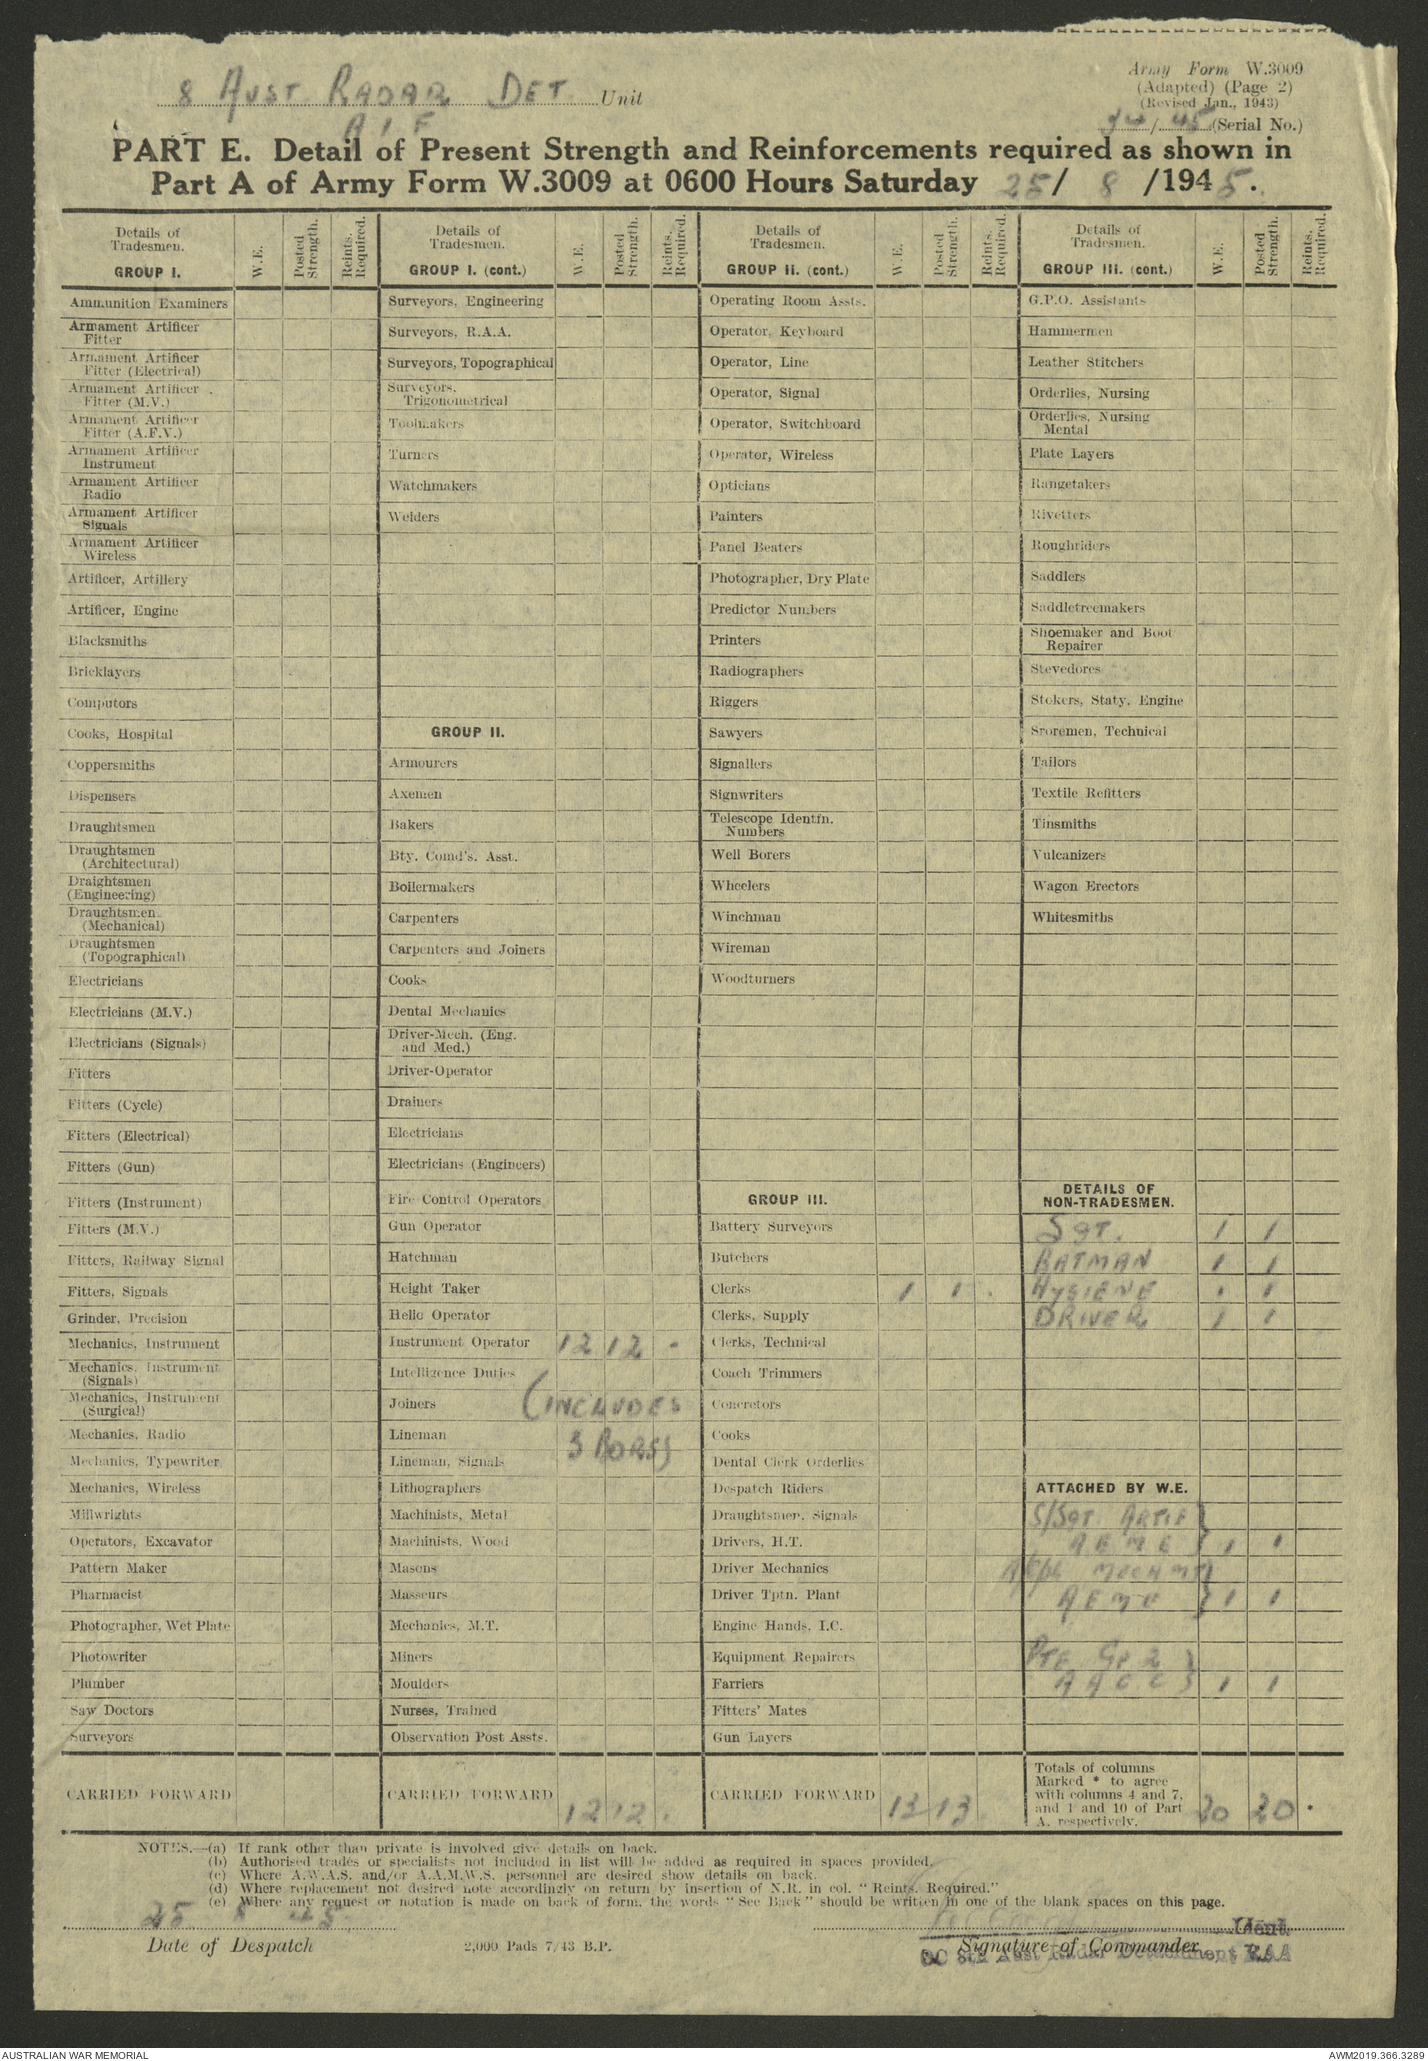 8 AUST RADAR DET Unit
A I F
Army Form W.3009
(Adapted) (Page 2)
(Revised Jan., 1943)
34/45 (Serial No.)
PART E. Detail of Present Strength and Reinforcements required as shown in
Part A of Army Form W.3009 at 0600 Hours Saturday 25/ 8 /1945.
Details of Tradesmen. GROUP I. W.E. Posted Strength. Reints. Required.
Ammunition Examiners
Armament Artificer Fitter
Armament Artificer Fitter (Electrical)
Armament Artificer Fitter (M.V.)
Armament Artificer Fitter (A.F.V.)
Armament Artificer Instrument
Armament Artificer Radio
Armament Artificer Signals
Armament Artificer Wireless
Artificer, Artillery
Artificer, Engine
Blacksmiths
Bricklayers
Computors
Cooks, Hospital
Coppersmiths
Dispensers
Draughtsmen
Draughtsmen (Architectural)
Draightsmen (Engineering)
Draughtsmen (Mechanical)
Draughtsmen (Topographical)
Electricians
Electricians (M.V.)
Electricians (Signals)
Fitters
Fitters (Cycle)
Fitters (Electrical)
Fitters (Gun)
Fitters (Instrument)
Fitters (M.V.)
Fitters, Railway Signal
Fitters, Signals
Grinder, Precision
Mechanics, Instrument
Mechanics, Instrument (Signals)
Mechanics, Instrument (Surgical)
Mechanics, Radio
Mechanics, Typewriter
Mechanics, Wireless
Millwrights
Operators, Excavator
Pattern Maker
Pharmacist
Photographer, Wet Plate
Photowriter
Plumber
Saw Doctors
Surveyors
CARRIED FORWARD
Details of Tradesmen. GROUP I. (cont.) W.E. Posted Strength. Reints. Required.
Surveyors, Engineering
Surveyors, R.A.A.
Surveyors, Topographical
Surveyors, Trigonometrical
Toolmakers
Turners
Watchmakers
Welders
GROUP II.
Armourers
Axemen
Bakers
Bty. Comd's. Asst.
Boilermakers
Carpenters
Carpenters and Joiners
Cooks
Dental Mechanics
Driver-Mech. (Eng. and Med.)
Driver-Operator
Drainers
Electricians
Electricians (Engineers)
Fire Control Operators
Gun Operator
Hatchman
Height Taker
Helio Operator
Instrument Operator 12 12 -
Intelligence Duties
Joiners (INCLUDES
Lineman 3 BDRS)
Lineman, Signals
Lithographers
Machinists, Metal
Machinists, Wood
Masons
Masseurs
Mechanics, M.T.
Miners
Moulders
Nurses, Trained
Observation Post Assts.
CARRIED FORWARD 12 12 .
Details of Tradesmen. GROUP II. (cont.) W.E. Posted Strength. Reints. Required.
Operating Room Assts.
Operator, Keyboard
Operator, Line
Operator, Signal
Operator, Switchboard
Operator, Wireless
Opticians
Painters
Panel Beaters
Photographer, Dry Plate
Predictor Numbers
Printers
Radiographers
Riggers
Sawyers
Signallers
Signwriters
Telescope Identfn. Numbers
Well Borers
Wheelers
Winchman
Wireman
Woodturners
GROUP III.
Battery Surveyors
Butchers
Clerks 1 1 .
Clerks, Supply
Clerks, Technical
Coach Trimmers
Concretors
Cooks
Dental Clerk Orderlies
Despatch Riders
Draughtsmen, Signals
Drivers, H.T.
Driver Mechanics
Driver Tptn. Plant
Engine Hands, I.C.
Equipment Repairers
Farriers
Fitters' Mates
Gun Layers
CARRIED FORWARD 13 13
Details of Tradesmen. GROUP III. (cont.) W.E. Posted Strength. Reints. Required.
G.P.O. Assistants
Hammermen
Leather Stitchers
Orderlies, Nursing
Orderlies, Nursing Mental
Plate Layers
Rangetakers
Rivetters
Roughriders
Saddlers
Saddletreemakers
Shoemaker and Boot Repairer
Stevedores
Stokers, Staty. Engine
Sroremen, Technical
Tailors
Textile Refitters
Tinsmiths
Vulcanizers
Wagon Erectors
Whitesmiths
DETAILS OF NON-TRADESMEN.
SGT. 1 1
BATMAN 1 1
HYGIENE . 1
DRIVER 1 1
ATTACHED BY W.E.
S/SGT ARTIF
A E M E } 1 1
MECH MT
A E M E } 1 1
PTE GP 2
A A C C } 1 1
Totals of columns Marked * to agree with columns 4 and 7, and 1 and 10 of Part A. respectively. 20 20 .
NOTES.—(a) If rank other than private is involved give details on back.
(b) Authorised trades or specialists not included in list will be added as required in spaces provided.
(c) Where A.W.A.S. and/or A.A.M.W.S. personnel are desired show details on back.
(d) Where replacement not desired note accordingly on return by insertion of N.R. in col. "Reints. Required."
(e) Where any request or notation is made on back of form, the words "See Back" should be written in one of the blank spaces on this page.
25 8 45
Date of Despatch
2,000 Pads 7/43 B.P.
Lieut.
Signature of Commander
OC 8th Aust Radar Detachment RAA
AUSTRALIAN WAR MEMORIAL
AWM2019.366.3289